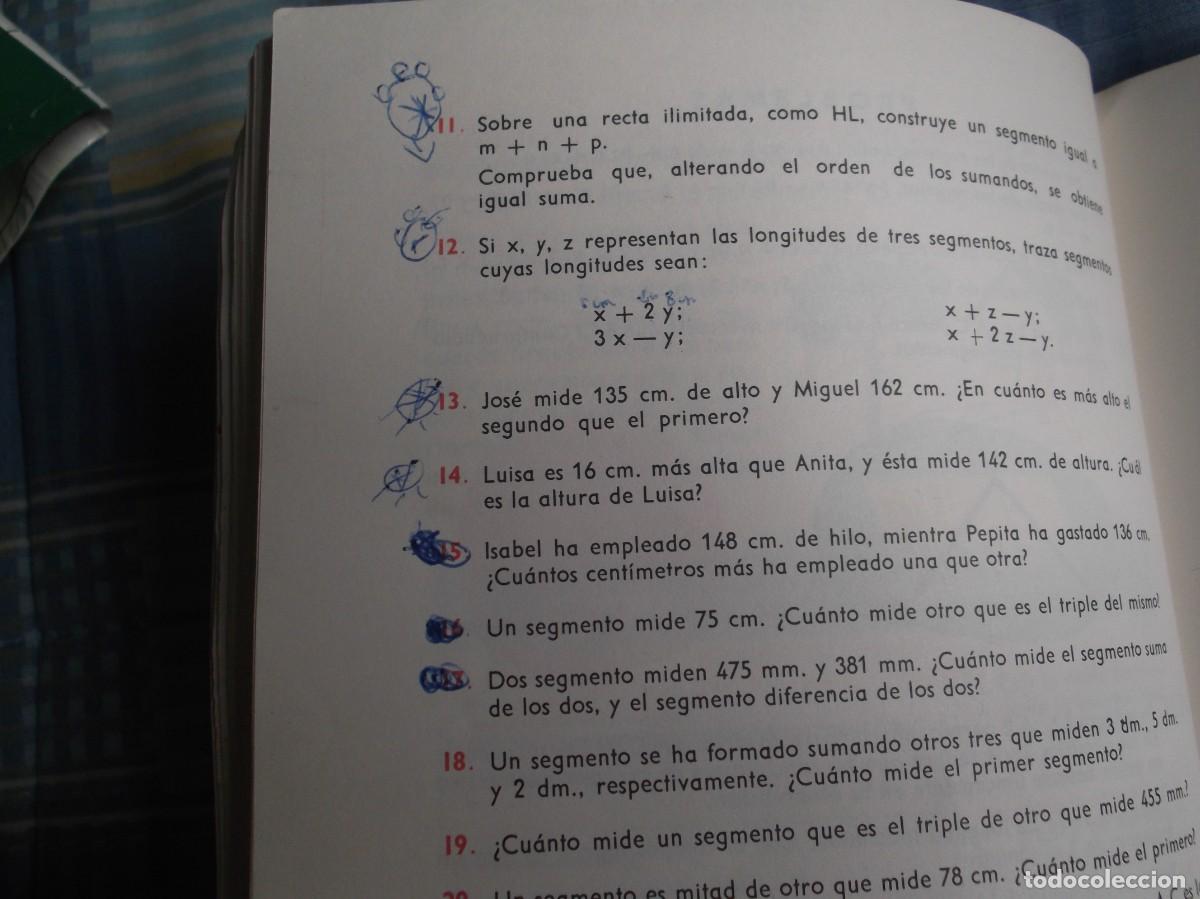 11. Sobre una recta ilimitada, como HL, construye un segmento igual a
m + n + p.
Comprueba que, alterando el orden de los sumandos, se obtiene
igual suma.
12. Si x, y, z representan las longitudes de tres segmentos, traza segmentos
cuyas longitudes sean:
x + 2 y; x + z — y;
3 x — y; x + 2 z — y.
13. José mide 135 cm. de alto y Miguel 162 cm. ¿En cuánto es más alto el
segundo que el primero?
14. Luisa es 16 cm. más alta que Anita, y ésta mide 142 cm. de altura. ¿Cuál
es la altura de Luisa?
15. Isabel ha empleado 148 cm. de hilo, mientra Pepita ha gastado 136 cm.
¿Cuántos centímetros más ha empleado una que otra?
16. Un segmento mide 75 cm. ¿Cuánto mide otro que es el triple del mismo?
Dos segmento miden 475 mm. y 381 mm. ¿Cuánto mide el segmento suma
de los dos, y el segmento diferencia de los dos?
18. Un segmento se ha formado sumando otros tres que miden 3 dm., 5 dm.
y 2 dm., respectivamente. ¿Cuánto mide el primer segmento?
19. ¿Cuánto mide un segmento que es el triple de otro que mide 455 mm.?
20. Un segmento es mitad de otro que mide 78 cm. ¿Cuánto mide el primero?
todocoleccion